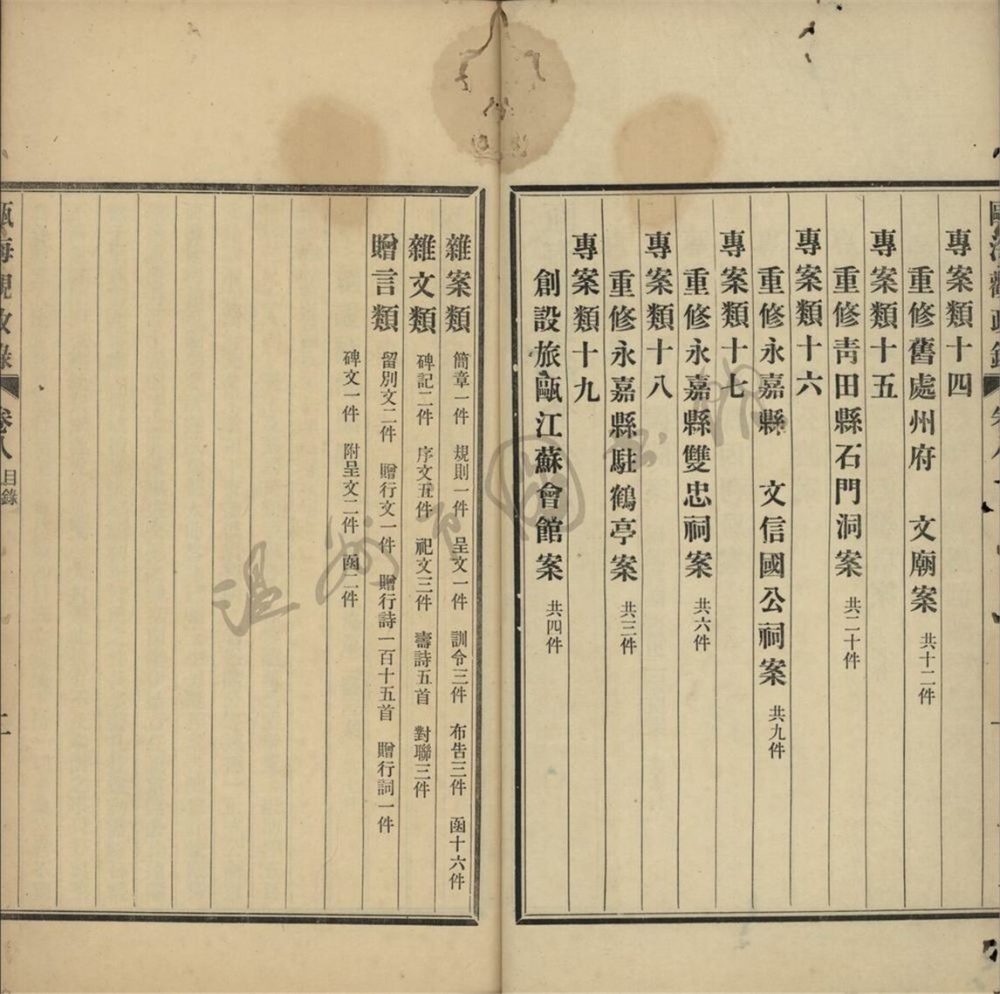 專案類十四
重修舊處州府　文廟案　共十二件
專案類十五
重修靑田縣石門洞案　共二十件
專案類十六
重修永嘉縣　文信國公祠案　共九件
專案類十七
重修永嘉縣雙忠祠案　共六件
專案類十八
重修永嘉縣駐鶴亭案　共三件
專案類十九
創設旅甌江蘇會館案　共四件
雜案類　簡章一件　規則一件　呈文一件　訓令三件　布告三件　函十六件
雜文類　碑記二件　序文五件　祀文三件　壽詩五首　對聯三件
贈言類　留別文二件　贈行文一件　贈行詩一百十五首　贈行詞一件
碑文一件　附呈文二件　函二件
甌海觀政錄　卷八　目錄　二
温州市图书馆